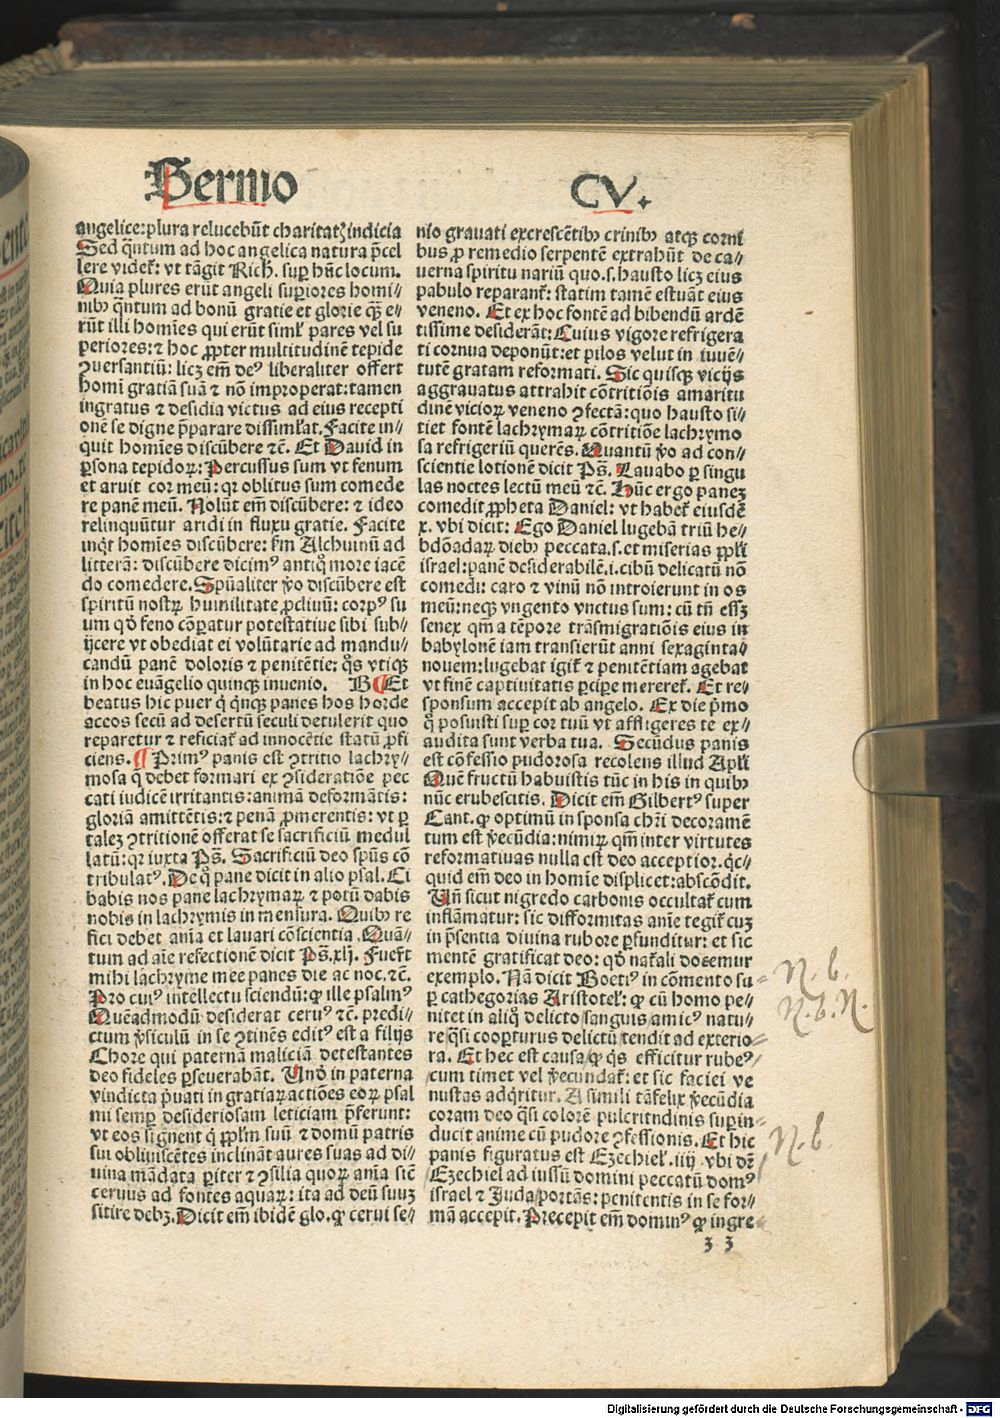 Sermo
CV.
angelice: plura relucebūt charitatꝭ indicia
Sed q̄ntum ad hoc angelica natura p̄cel
lere videt᷑: vt tāgit Rich. suꝑ hūc locum.
Quia plures erūt angeli suꝑiores homi⸗
nibꝰ q̄ntum ad bonū gratie et glorie qꝫ e⸗
rūt illi homīes qui erūt siml̓ pares vel su
ꝑiores: ⁊ hoc ꝓpter multitudinē tepide
ꝯuersantiū: licꝫ em̄ deꝰ liberaliter offert
homī gratiā suā ⁊ nō improperat: tamen
ingratus ⁊ desidia victus ad eius recepti
onē se digne p̄parare dissimlat. Facite in⸗
quit homīes discūbere ⁊c̄. Et Dauid in
ꝑsona tepidoꝝ: Percussus sum vt fenum
et aruit cor meū: qꝛ oblitus sum comede
re panē meū. Nolūt em̄ discūbere: ⁊ ideo
relinquūtur aridi in fluxu gratie. Facite
inq̇t homīes discūbere: ẜm Alchuinū ad
litterā: discūbere dicimꝰ antiq̊ more iacē
do comedere. Spūaliter v̊o discūbere est
spiritū nostꝝ humilitate ꝓcliuū: corpꝰ su
um qd̓ feno cōꝑatur potestatiue sibi sub⸗
ijcere vt obediat ei volūtarie ad mandu⸗
candū panē doloris ⁊ penitētie: q̊s vtiqꝫ
in hoc euāgelio quinqꝫ inuenio. B ¶ Et
beatus hic puer q̇ q̇nqꝫ panes hos horde
aceos secū ad desertū seculi detulerit quo
reparetur ⁊ reficiat᷑ ad innocētie statū ꝓfi
ciens. ¶ Primꝰ panis est ꝯtritio lachry⸗
mosa q̄ debet formari ex ꝯsideratiōe pec
cati iudicē irritantis: animā deformātis:
gloriā amittētis: ⁊ penā ꝓmerentis: vt ꝑ
taleꝫ ꝯtritionē offerat se sacrificiū medul
latū: qꝛ iuxta Pš. Sacrificiū deo spūs cō
tribulatꝰ. De q̊ pane dicit in alio psal. Ci
babis nos pane lachrymaꝝ ⁊ potū dabis
nobis in lachrymis in mensura. Quibꝰ re
fici debet anīa et lauari cōscientia. Quā⸗
tum ad aīe refectionē dicit Pš. xlj. Fuer̄t
mihi lachryme mee panes die ac noc. ⁊c̄.
Pro cuiꝰ intellectu sciendū: ꝙ ille psalmꝰ
Quēadmodū desiderat ceruꝰ ⁊c̄. predi⸗
ctum v̓siculū in se ꝯtinēs editꝰ est a filijs
Chore qui paternā maliciā detestantes
deo fideles ꝑseuerabāt. Unō in paterna
vindicta p̄uati in gratiaꝝ actiōes eoꝝ psal
mi semꝑ desideriosam leticiam p̄ferunt:
vt eos signent q̇ ppl̓m suū ⁊ domū patris
sui obliuiscētes inclināt aures suas ad di⸗
uina mādata ꝑiter ⁊ ꝯsilia quoꝝ anīa sic̄
ceruus ad fontes aquaꝝ: ita ad deū suuꝫ
sitire debꝫ. Dicit em̄ ibidē glo. ꝙ cerui se⸗
nio grauati excrescētibꝰ crinibꝰ atqꝫ corni
bus ꝓ remedio serpentē extrahūt de ca⸗
uerna spiritu nariū quo. s. hausto licꝫ eius
pabulo reparant᷑: statim tamē estuāt eius
veneno. Et ex hoc fontē ad bibendū ardē
tissime desiderāt: Cuius vigore refrigera
ti cornua deponūt: et pilos velut in iuuē⸗
tutē gratam reformati. Sic quisqꝫ vicijs
aggrauatus attrahit cōtritiōis amaritu
dinē vicioꝝ veneno ꝯfectā: quo hausto si⸗
tiet fontē lachrymaꝝ cōtritiōe lachrymo
sa refrigeriū querēs. Quantū v̊o ad con⸗
scientie lotionē dicit Pš. Lauabo ꝑ singu
las noctes lectū meū ⁊c̄. Hūc ergo paneꝫ
comedit ꝓpheta Daniel: vt habet᷑ eiusdē
x. vbi dicit: Ego Daniel lugebā triū he⸗
bdōadaꝝ diebꝰ peccata. s. et miserias ppl̓i
israel: panē desiderabilē. i. cibū delicatū nō
comedi: caro ⁊ vinū nō introierunt in os
meū: neqꝫ vngento vnctus sum: cū tn̄ essꝫ
senex qm̄ a tēpore trāsmigratiōis eius in
babylonē iam transierūt anni sexaginta
nouem: lugebat igit᷑ ⁊ penitētiam agebat
vt finē captiuitatis ꝑcipe mereret᷑. Et re⸗
sponsum accepit ab angelo. Ex die p̄mo
q̊ posuisti suꝑ cor tuū vt affligeres te ex⸗
audita sunt verba tua. Secūdus panis
est cōfessio pudorosa recolens illud Apl̓i
Quē fructū habuistis tūc in his in quibꝰ
nūc erubescitis. Dicit em̄ Gilbertꝰ super
Cant. ꝙ optimū in sponsa chr̄i decoramē
tum est v̓ecūdia: nimiꝝ qm̄ inter virtutes
reformatiuas nulla est deo acceptior. qc̄⸗
quid em̄ deo in homīe displicet: abscōdit.
Un̄ sicut nigredo carbonis occultat᷑ cum
inflāmatur: sic difformitas anīe tegit᷑ cuꝫ
in p̄sentia diuina rubore ꝑfunditur: et sic
mentē gratificat deo: qd̓ nat᷑ali docemur
exemplo. Nā dicit Boetiꝰ in cōmento su⸗
ꝑ cathegorias Aristotel̓: ꝙ cū homo pe⸗
nitet in aliq̊ delicto/sanguis/amicꝰ natu⸗
re/q̄si cooꝑturus delictū/tendit ad exterio⸗
ra. Et hec est causa/ꝙ q̇s efficitur rubeꝰ/
cum timet vel v̓ecundat᷑: et sic faciei ve
nustas adq̇ritur. A simili tāfelix v̓ecūdia
coram deo q̄si colorē pulcritndinis suꝑin⸗
ducit anime cū pudore ꝯfessionis. Et hic
panis figuratus est Ezechiel̓. iiij vbi dr̄
Ezechiel ad iussū domini peccatū domꝰ
israel ⁊ Juda/portās: penitentis in se for⸗
mā accepit. Precepit em̄ dominꝰ ꝙ ingre⸗
N. b.
N. b. N.
N. b
3 3
Digitalisierung gefördert durch die Deutsche Forschungsgemeinschaft - DFG